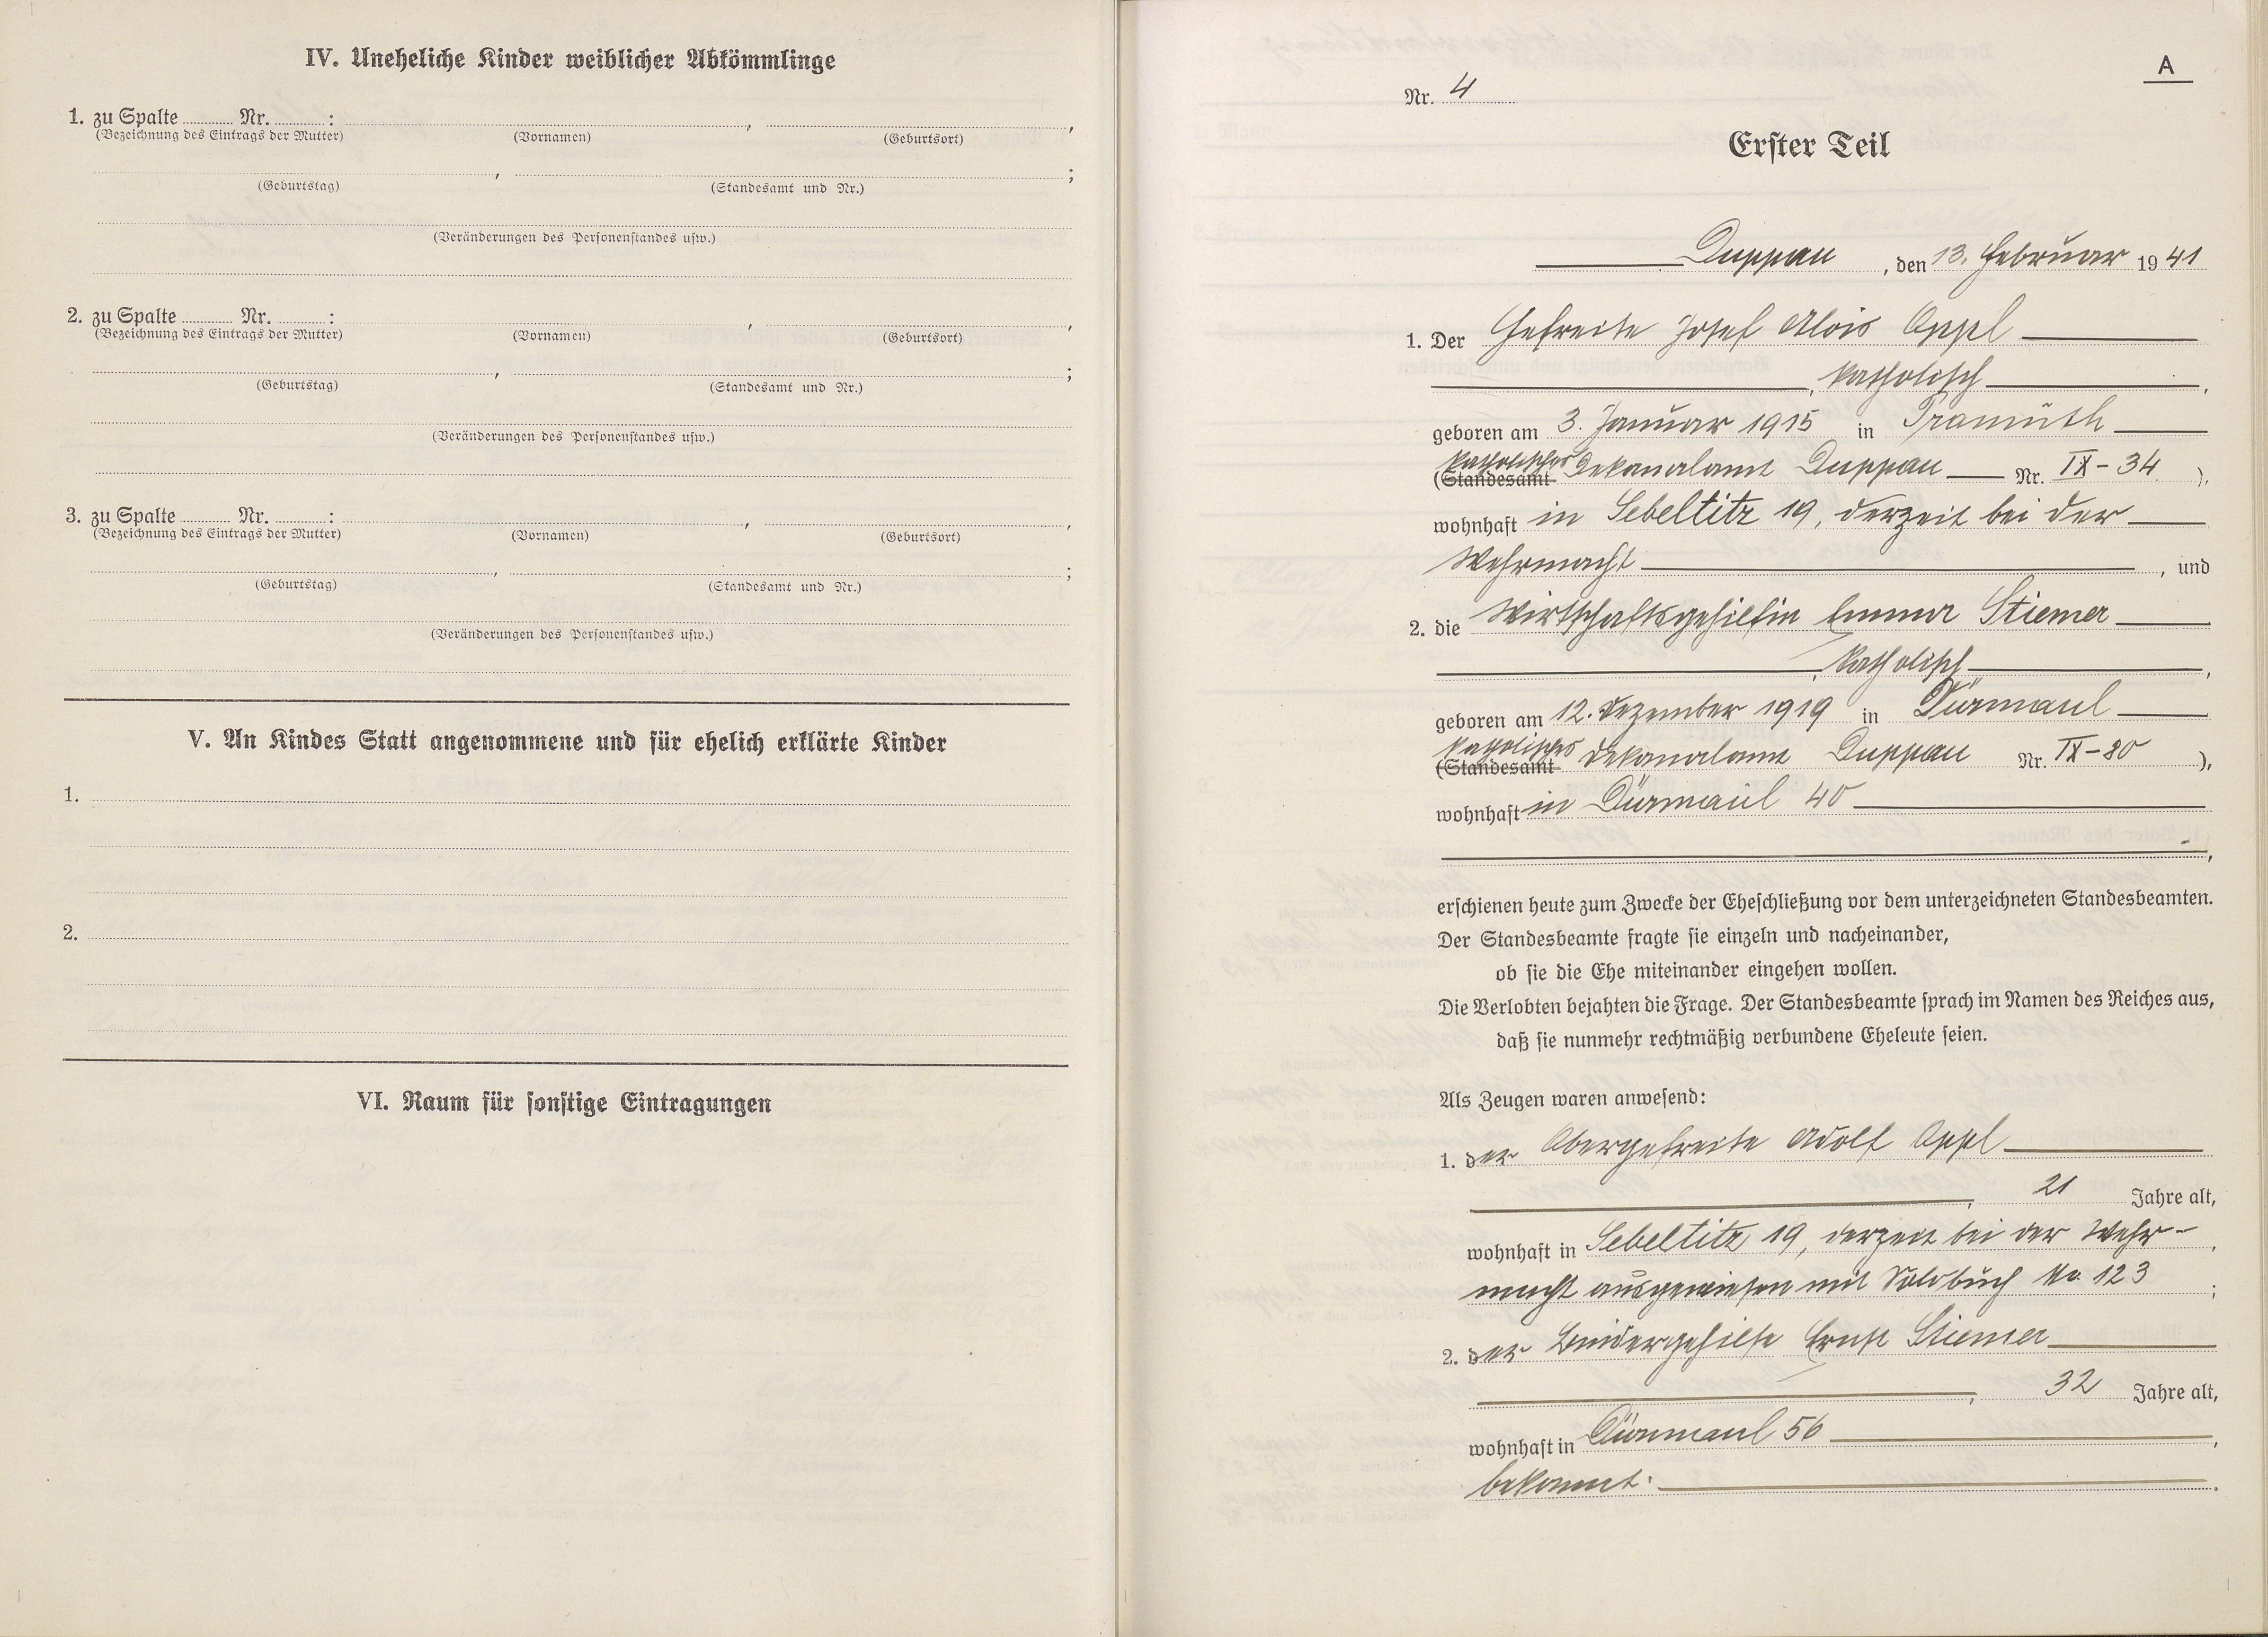 IV. Uneheliche Kinder weiblicher Abkömmlinge
1. zu Spalte ........... Nr. ........... :
(Bezeichnung des Eintrags der Mutter) (Vornamen) , (Geburtsort) ,
(Geburtstag) , (Standesamt und Nr.) ;
(Veränderungen des Personenstandes usw.)
2. zu Spalte ........... Nr. ........... :
(Bezeichnung des Eintrags der Mutter) (Vornamen) , (Geburtsort) ,
(Geburtstag) , (Standesamt und Nr.) ;
(Veränderungen des Personenstandes usw.)
3. zu Spalte ........... Nr. ........... :
(Bezeichnung des Eintrags der Mutter) (Vornamen) , (Geburtsort) ,
(Geburtstag) , (Standesamt und Nr.) ;
(Veränderungen des Personenstandes usw.)
V. An Kindes Statt angenommene und für ehelich erklärte Kinder
1.
2.
VI. Raum für sonstige Eintragungen
A
Nr. 4
Erster Teil
Duppau, den 13. Februar 1941
1. Der Gefreite Josef Alois Appl
, katholisch,
geboren am 3. Januar 1915 in Tramüth
katholisches
(Standesamt Dekanalamt Duppau Nr. IX-34 ),
wohnhaft in Sebeltitz 19, derzeit bei der
Wehrmacht, und
2. die Wirtschaftsgehilfin Emma Stiemer
, katholisch,
geboren am 12. Dezember 1919 in Dürmaul
katholisches
(Standesamt Dekanalamt Duppau Nr. IX-80 ),
wohnhaft in Dürmaul 40
,
erschienen heute zum Zwecke der Eheschließung vor dem unterzeichneten Standesbeamten.
Der Standesbeamte fragte sie einzeln und nacheinander,
ob sie die Ehe miteinander eingehen wollen.
Die Verlobten bejahten die Frage. Der Standesbeamte sprach im Namen des Reiches aus,
daß sie nunmehr rechtmäßig verbundene Eheleute seien.
Als Zeugen waren anwesend:
1. der Obergefreite Adolf Appl
, 21 Jahre alt,
wohnhaft in Sebeltitz 19, derzeit bei der Wehr-,
macht ausgewiesen mit Soldbuch No 123 ;
2. der Bindergehilfe Ernst Stiemer
, 32 Jahre alt,
wohnhaft in Dürmaul 56,
bekannt.